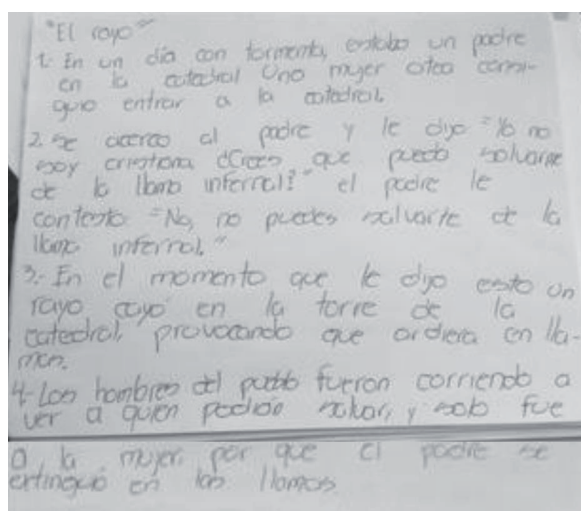 "El rayo"
1. En un día con tormenta, estaba un padre
en la catedral Una mujer atea consi-
guio entrar a la catedral.
2. Se acerco al padre y le dijo "Yo no
soy cristiana ¿Crees que puedo salvarme
de la llama infernal?" el padre le
contesto "No, no puedes salvarte de la
llama infernal."
3.- En el momento que le dijo esto un
rayo cayó en la torre de la
catedral, provocando que ardiera en lla-
mas.
4-Los hombres del pueblo fueron corriendo a
ver a quien podían salvar, y solo fue
a la mujer, por que el padre se
extinguió en las llamas